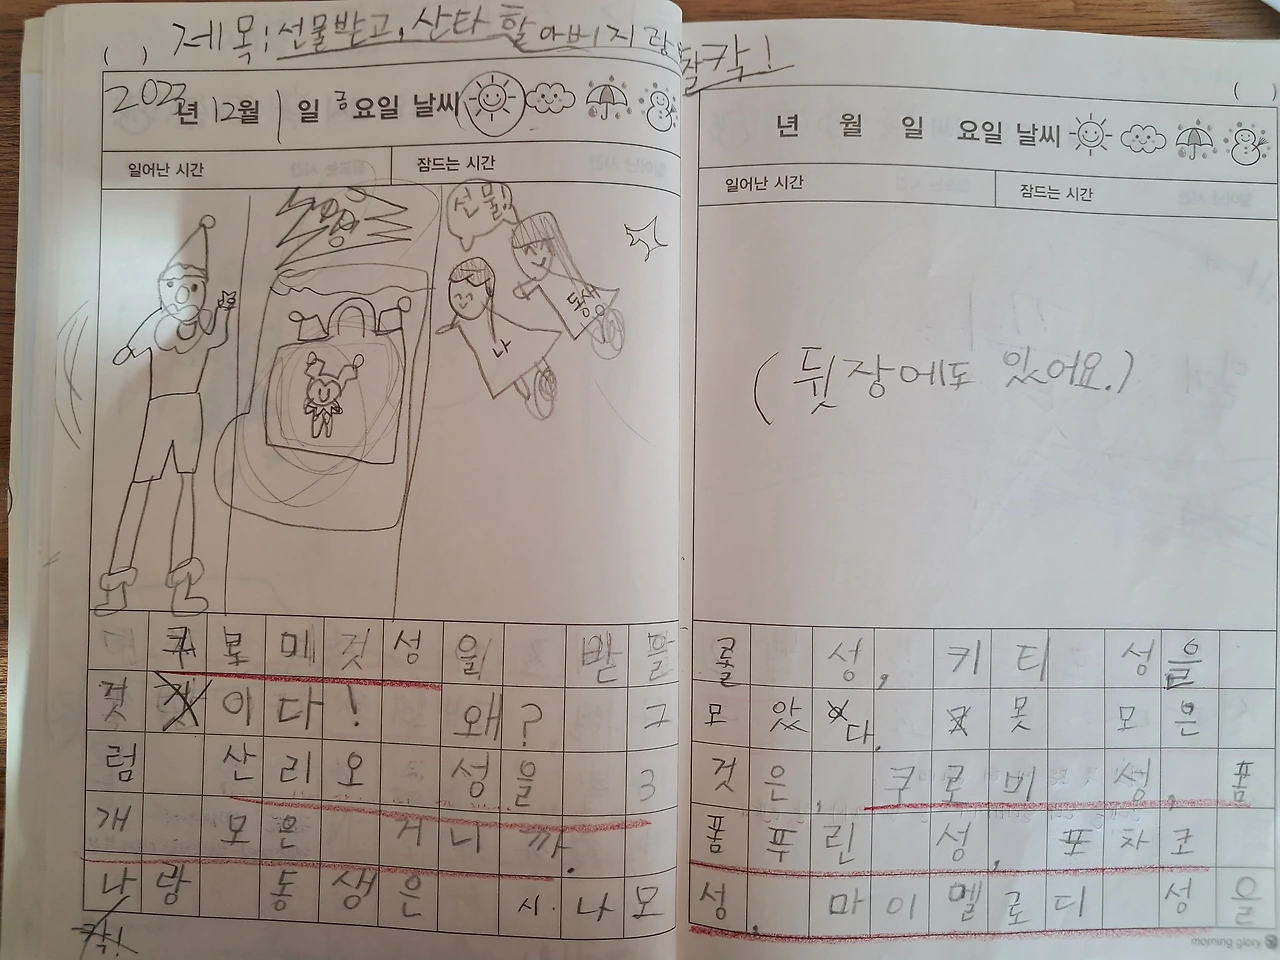 제목: 선물받고, 산타 할아버지랑 찰칵!
( )
2023년 12월 1일 금요일 날씨
일어난 시간 잠드는 시간
선물
나
동생
쿠로미 것 성을 받을
것이다! 왜? 그
럼 산리오 성을 3
개 모은 거니까.
나랑 동생은 시나모
( )
년 월 일 요일 날씨
일어난 시간
잠드는 시간
(뒷장에도 있어요.)
롤 성, 키티 성을
모았다. 못 모은
것은, 쿠로미 성, 폼
폼푸린 성, 포차코
성, 마이멜로디 성을
morning glory